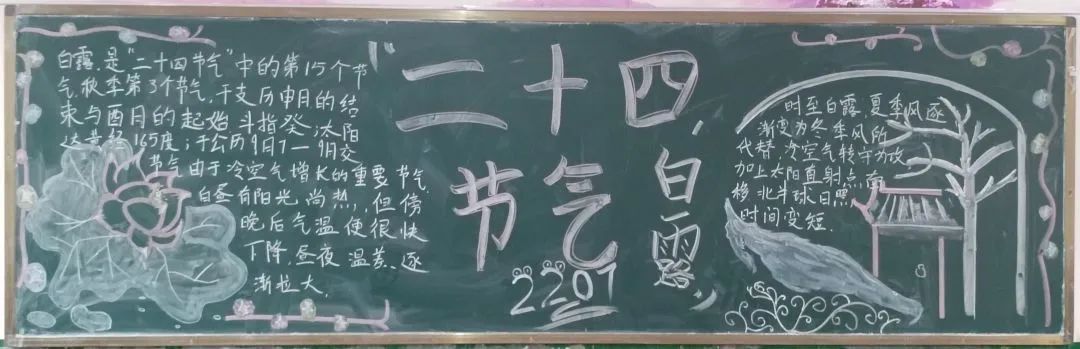 白露是“二十四节气”中的第15个节
气,秋季第3个节气,干支历申月的结
束与酉月的起始.斗指癸;太阳
达黄经165度;于公历9月7—9月交
节气由于冷空气增长的重要节气,
白昼有阳光尚热,但傍
晚后气温便很快
下降,昼夜温差逐
渐拉大.
“二十四
节气
白露”
2207
时至白露,夏季风逐
渐变为冬季风所
代替,冷空气转守为攻
加上太阳直射点南
移,北半球日照
时间变短.